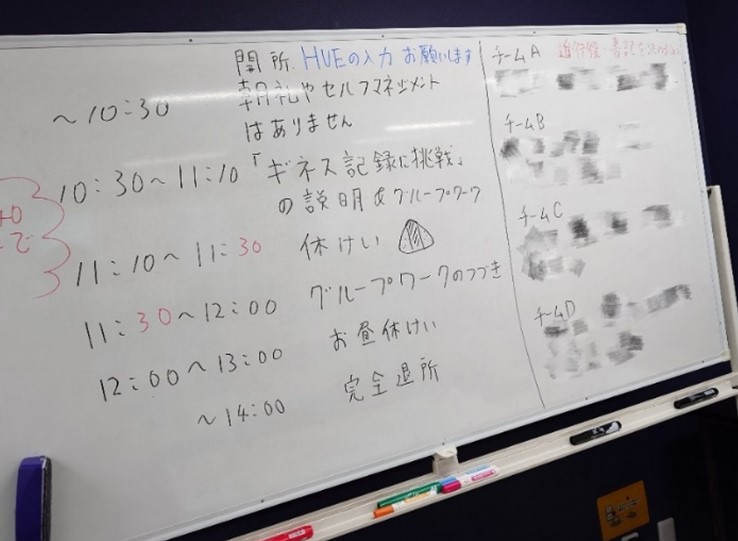 開所 HUEの入力 お願いします
~10:30 朝礼やセルフマネジメント
はありません
10:30~11:10 「ギネス記録に挑戦」
の説明&グループワーク
11:10~11:30 休けい
11:30~12:00 グループワークのつづき
12:00~13:00 お昼休けい
~14:00 完全退所
40
で
チームA 進行役・書記を
チームB
チームC
チームD